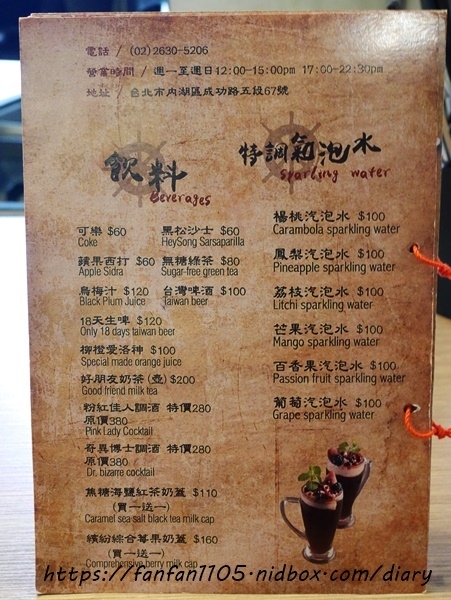 電話 / (02)2630-5206
營業時間 / 週一至週日12:00-15:00pm 17:00-22:30pm
地址 / 台北市內湖區成功路五段67號
飲料
Beverages
可樂 $60
Coke
黑松沙士 $60
HeySong Sarsaparilla
蘋果西打 $60
Apple Sidra
無糖綠茶 $80
Sugar-free green tea
烏梅汁 $120
Black Plum Juice
台灣啤酒 $100
Taiwan beer
18天生啤 $120
Only 18 days taiwan beer
柳橙愛洛神 $100
Special made orange juice
好朋友奶茶(壺)$200
Good friend milk tea
粉紅佳人調酒 特價280
原價380
Pink Lady Cocktail
奇異博士調酒 特價280
原價380
Dr. bizarre cocktail
焦糖海鹽紅茶奶蓋 $110
(買一送一)
Caramel sea salt black tea milk cap
繽紛綜合莓果奶蓋 $160
(買一送一)
Comprehensive berry milk cap
特調氣泡水
Sparling water
楊桃汽泡水 $100
Carambola sparkling water
鳳梨汽泡水 $100
Pineapple sparkling water
荔枝汽泡水 $100
Litchi sparkling water
芒果汽泡水 $100
Mango sparkling water
百香果汽泡水 $100
Passion fruit sparkling water
葡萄汽泡水 $100
Grape sparkling water
https://fanfan1105.nidbox.com/diary